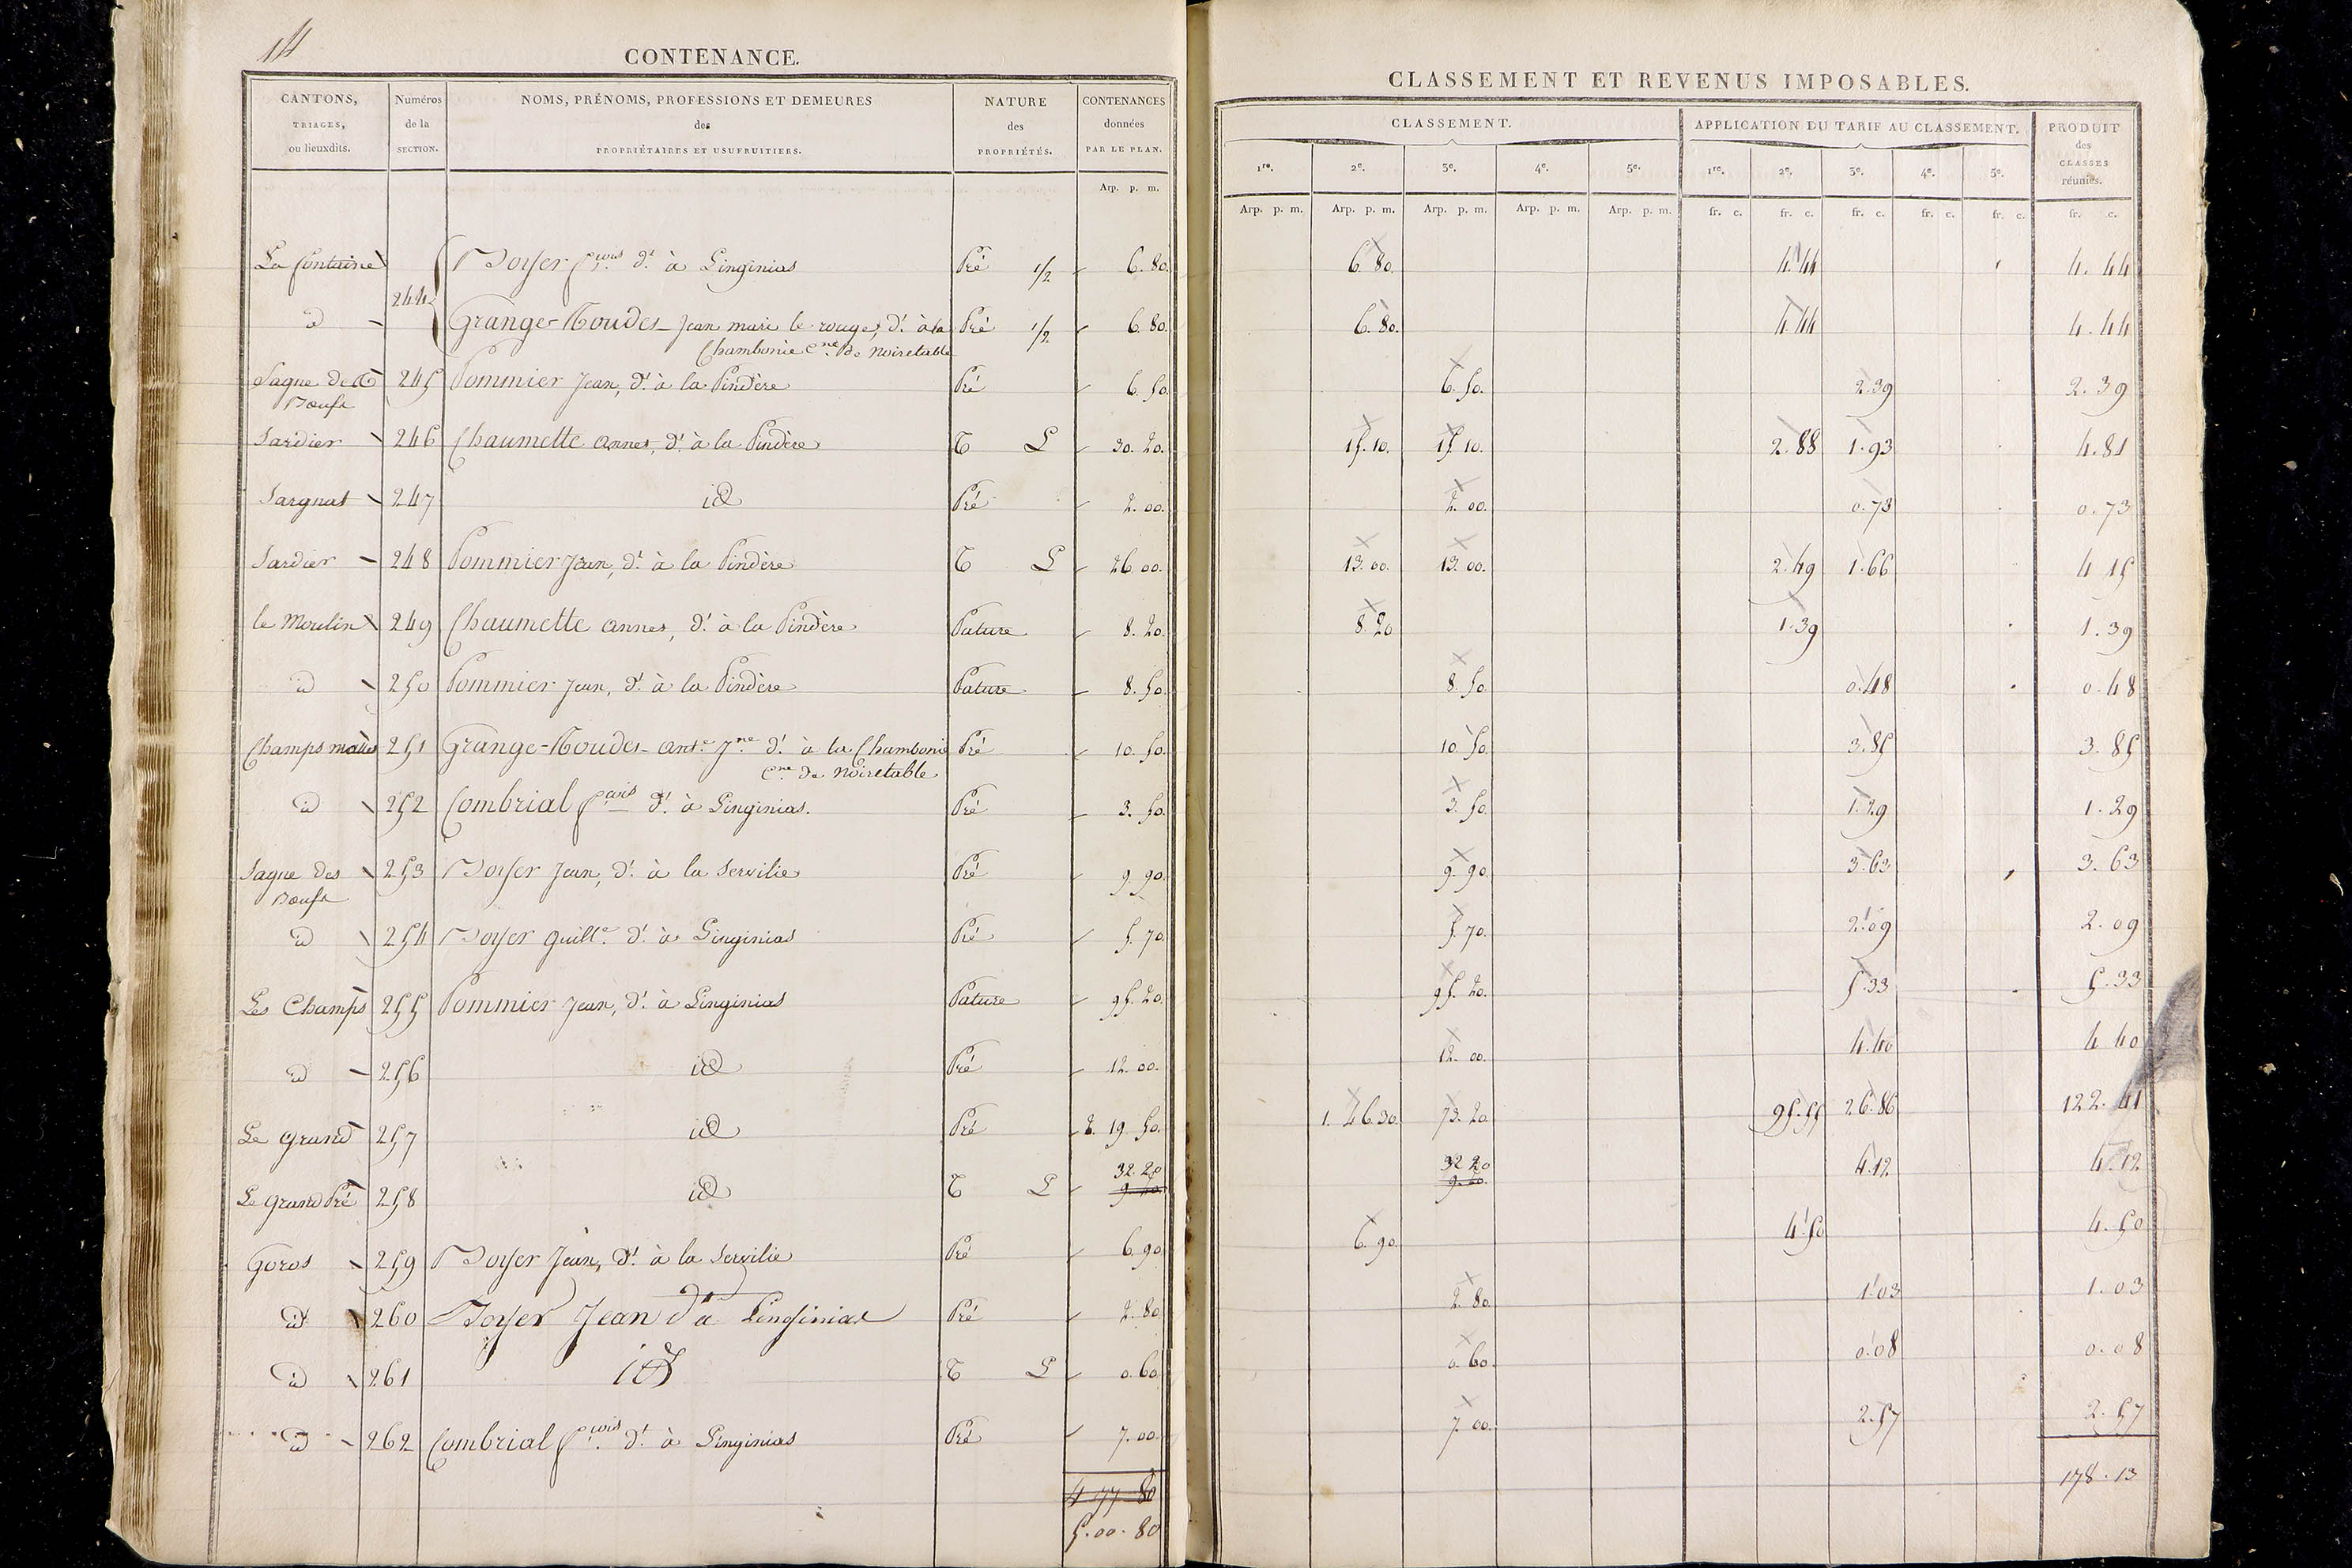 14
CONTENANCE.
CANTONS, TRIAGES, ou lieuxdits. Numéros de la SECTION. NOMS, PRÉNOMS, PROFESSIONS ET DEMEURES des PROPRIÉTAIRES ET USUFRUITIERS. NATURE des PROPRIÉTÉS. CONTENANCES données PAR LE PLAN.
Arp. p. m.
CLASSEMENT ET REVENUS IMPOSABLES.
CLASSEMENT. APPLICATION DU TARIF AU CLASSEMENT. PRODUIT des CLASSES réunies.
1re. 2e. 3e. 4e. 5e. 1re. 2e. 3e. 4e. 5e.
Arp. p. m. Arp. p. m. Arp. p. m. Arp. p. m. Arp. p. m. fr. c. fr. c. fr. c. fr. c. fr. c. fr. c.
La fontaine 244 Boyer fçois dt à Linginias Pré 1/2 6. 80. 6. 80. 4.44 4. 44
id Grange-Roudes Jean marie le rouge, dt à la Pré 1/2 6. 80. 6. 80. 4.44 4. 44
Chambonie Cne de Noiretable
Sagne des 245 Pommier Jean, dt à la Pindère Pré 6. 50. 6. 50. 2.39 2. 39
Boeufs
Sardier 246 Chaumette annes, dt à la Pindère T L 30. 20. 15. 10. 15. 10. 2.88 1.93 4.81
Sargnat 247 id Pré 2. 00. 2. 00. 0.73 0.73
Sardier 248 Pommier Jean, dt à la Pindère T L 26 00. 13. 00. 13. 00. 2.49 1.66 4 15
le Moulin 249 Chaumette annes, dt à la Pindère Pature 8. 20. 8. 20 1.39 1.39
id 250 Pommier Jean, dt à la Pindère Pature 8. 50. 8. 50. 0.48 0.48
Champs 251 Grange-Roudes ante Jne dt à la Chambonie Pré 10. 50. 10. 50. 3.85 3.85
Cne de Noiretable
id 252 Combrial fçois dt à Linginias. Pré 3. 50. 3. 50. 1.29 1.29
Sagne des 253 Boyer Jean, dt à la Servilie Pré 9. 90. 9. 90. 3.63 3.63
Boeufs
id 254 Boyer guille dt à Linginias Pré 5. 70. 5. 70. 2.09 2.09
Les Champs 255 Pommier Jean, dt à Linginias Pature 95. 20. 95. 20. 5.33 5.33
id 256 id Pré 12. 00. 12. 00. 4.40 4 40
Le grand 257 id Pré 2. 19. 50. 1. 46. 30. 73. 20. 95.55 26.86 122.41
32. 20 32 20
Le grand Pré 258 id T L 9. 20. 9. 20. 4.12 4.12
Goros 259 Boyer Jean, dt à la Servilie Pré 6. 90. 6. 90. 4.50 4.50
id 260 Boyer Jean dt à Linginias Pré 2. 80. 2. 80. 1.03 1.03
id 261 id T L 0. 60. 0. 60. 0.08 0.08
id 262 Combrial fçois dt à Linginias Pré 7. 00. 7. 00. 2.57 2.57
4 77 80 178.13
5.00.80